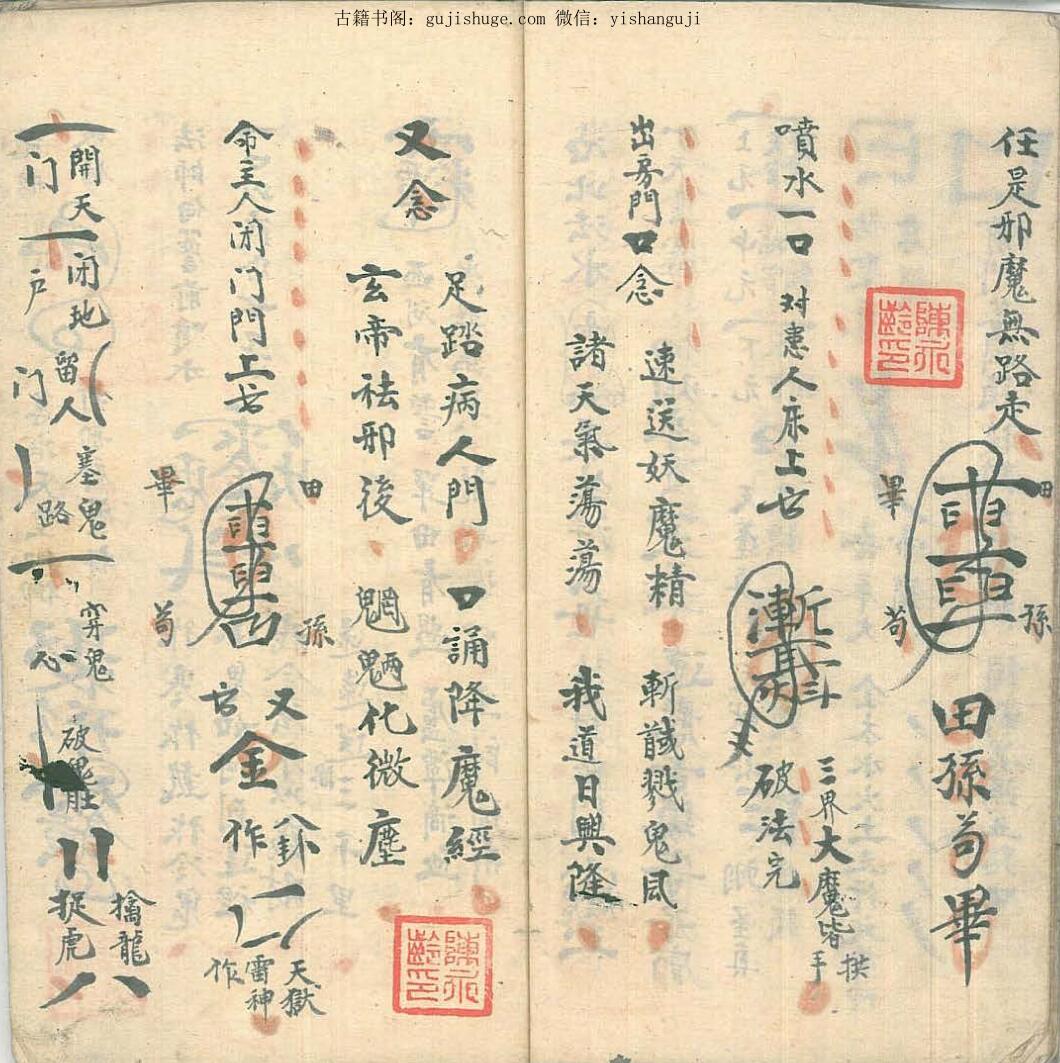 古籍书阁：gujishuge.com 微信：yishanguji
任是邪魔無路走
田
孫
苟
畢
田孫苟畢
噴水一口 对患人床上书
三界大魔皆拱手
破法完
出房門口念
速送妖魔精 斬馘戮鬼風
諸天氣蕩蕩 我道日興隆
又念
足踏病人門 口誦降魔經
玄帝祛邪後 魍魎化微塵
命主人闭门門上书
田
孫
畢
苟
又书金
八卦作
天獄雷神作
開天门
闭地户
留人门
塞鬼路
穿鬼心
破鬼肚
擒龍捉虎
陳永齡印
陳永齡印